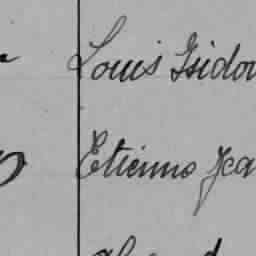 Louis Isidor
Etienne Jea